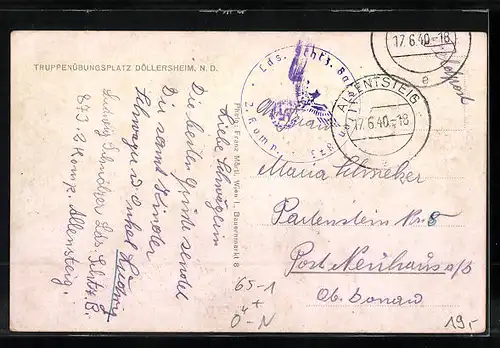 TRUPPENÜBUNGSPLATZ DÖLLERSHEIM, N. D.
Liebe Schwägerin
Die besten Grüße sendet
Dir samt Kinder
Schwager u Onkel Ludwig
Ludwig Lds. Schtz. B.
873. 2 Komp. Allensteig.
Photo: Franz Mörtl, Wien I., Bauernmarkt 8
Lds. Schtz. Bat. 873
2. Komp.
17.6.40.-18
e
ALLENTSTEIG
17.6.40.-18
Feldpost
Maria
Partenstein Nr 8
Post Neuhaus a/D
Ob. Donau
65-1
+
Ö-N
19,-